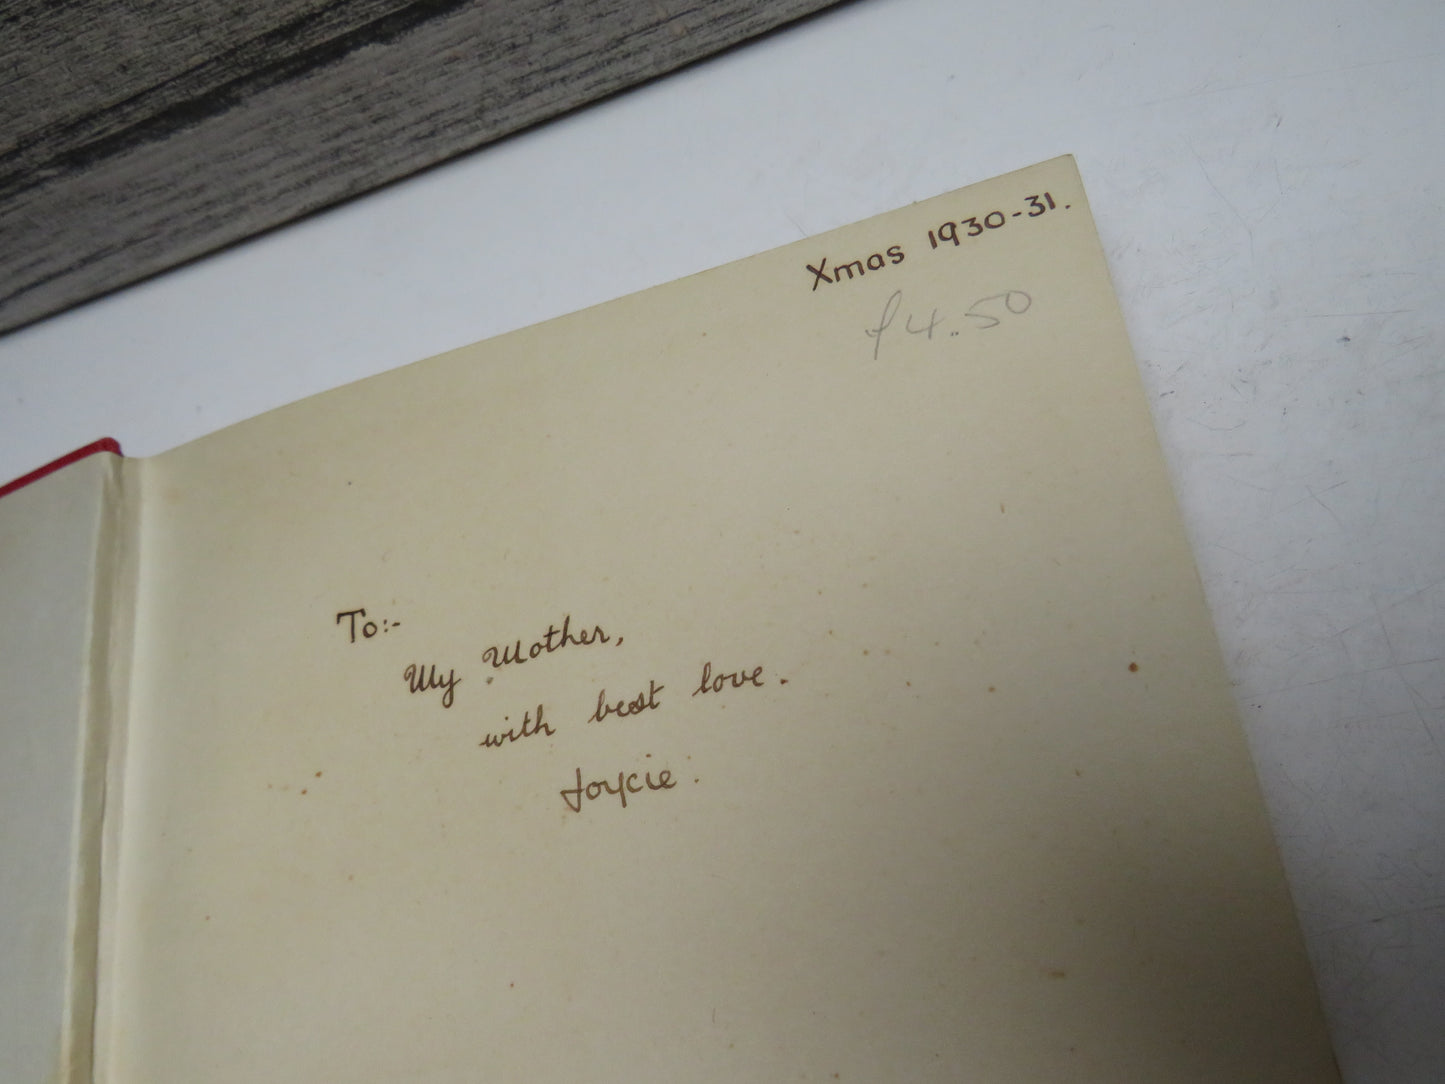 Xmas 1930-31.
£4.50
To:-
My Mother,
with best love.
Joycie.